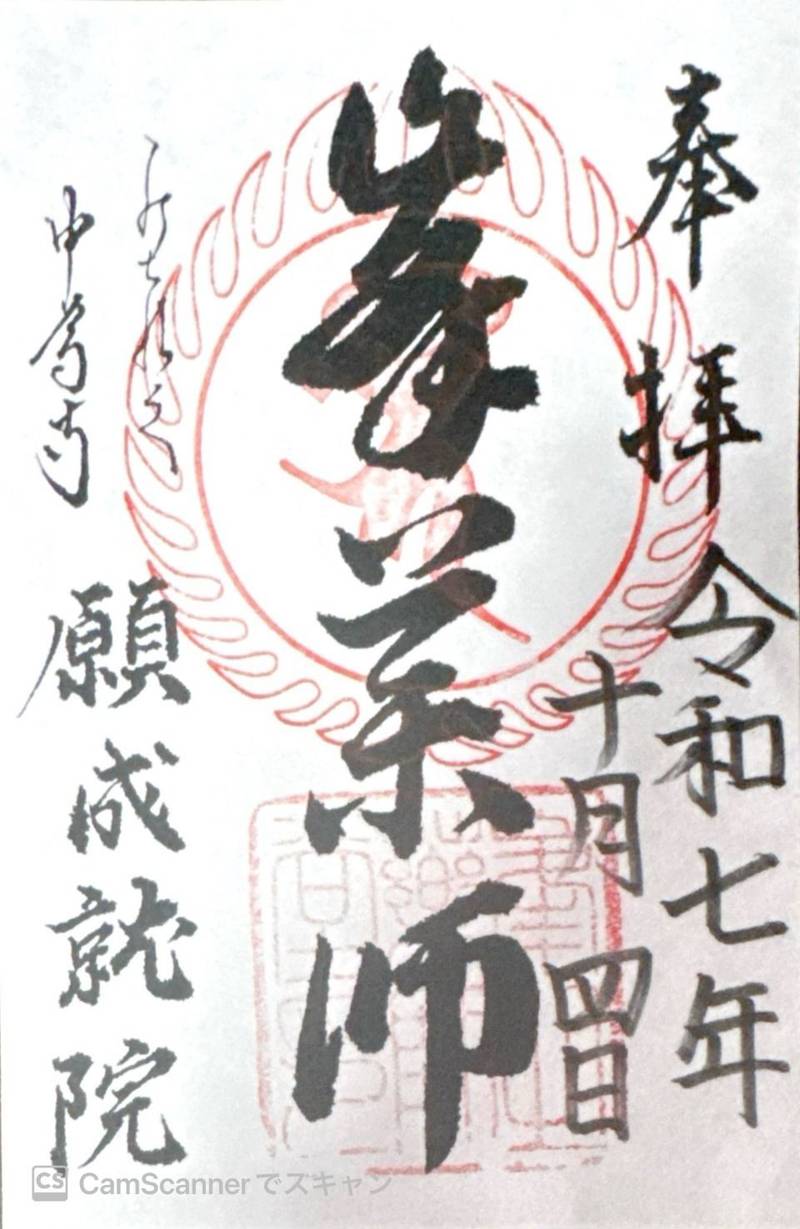 奉拝
令和七年
十月四日
峯薬師
中尊寺
願成就院
CS CamScannerでスキャン